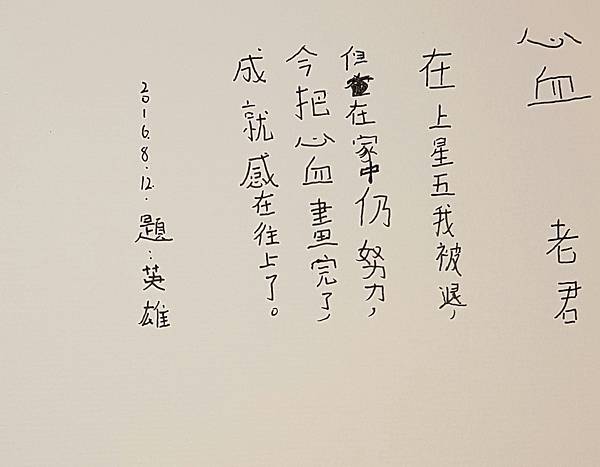 心血 老君
在上星五我被退,
但在家中仍努力,
今把心血畫完了,
成就感在往上了。
2016.8.12. 題:英雄